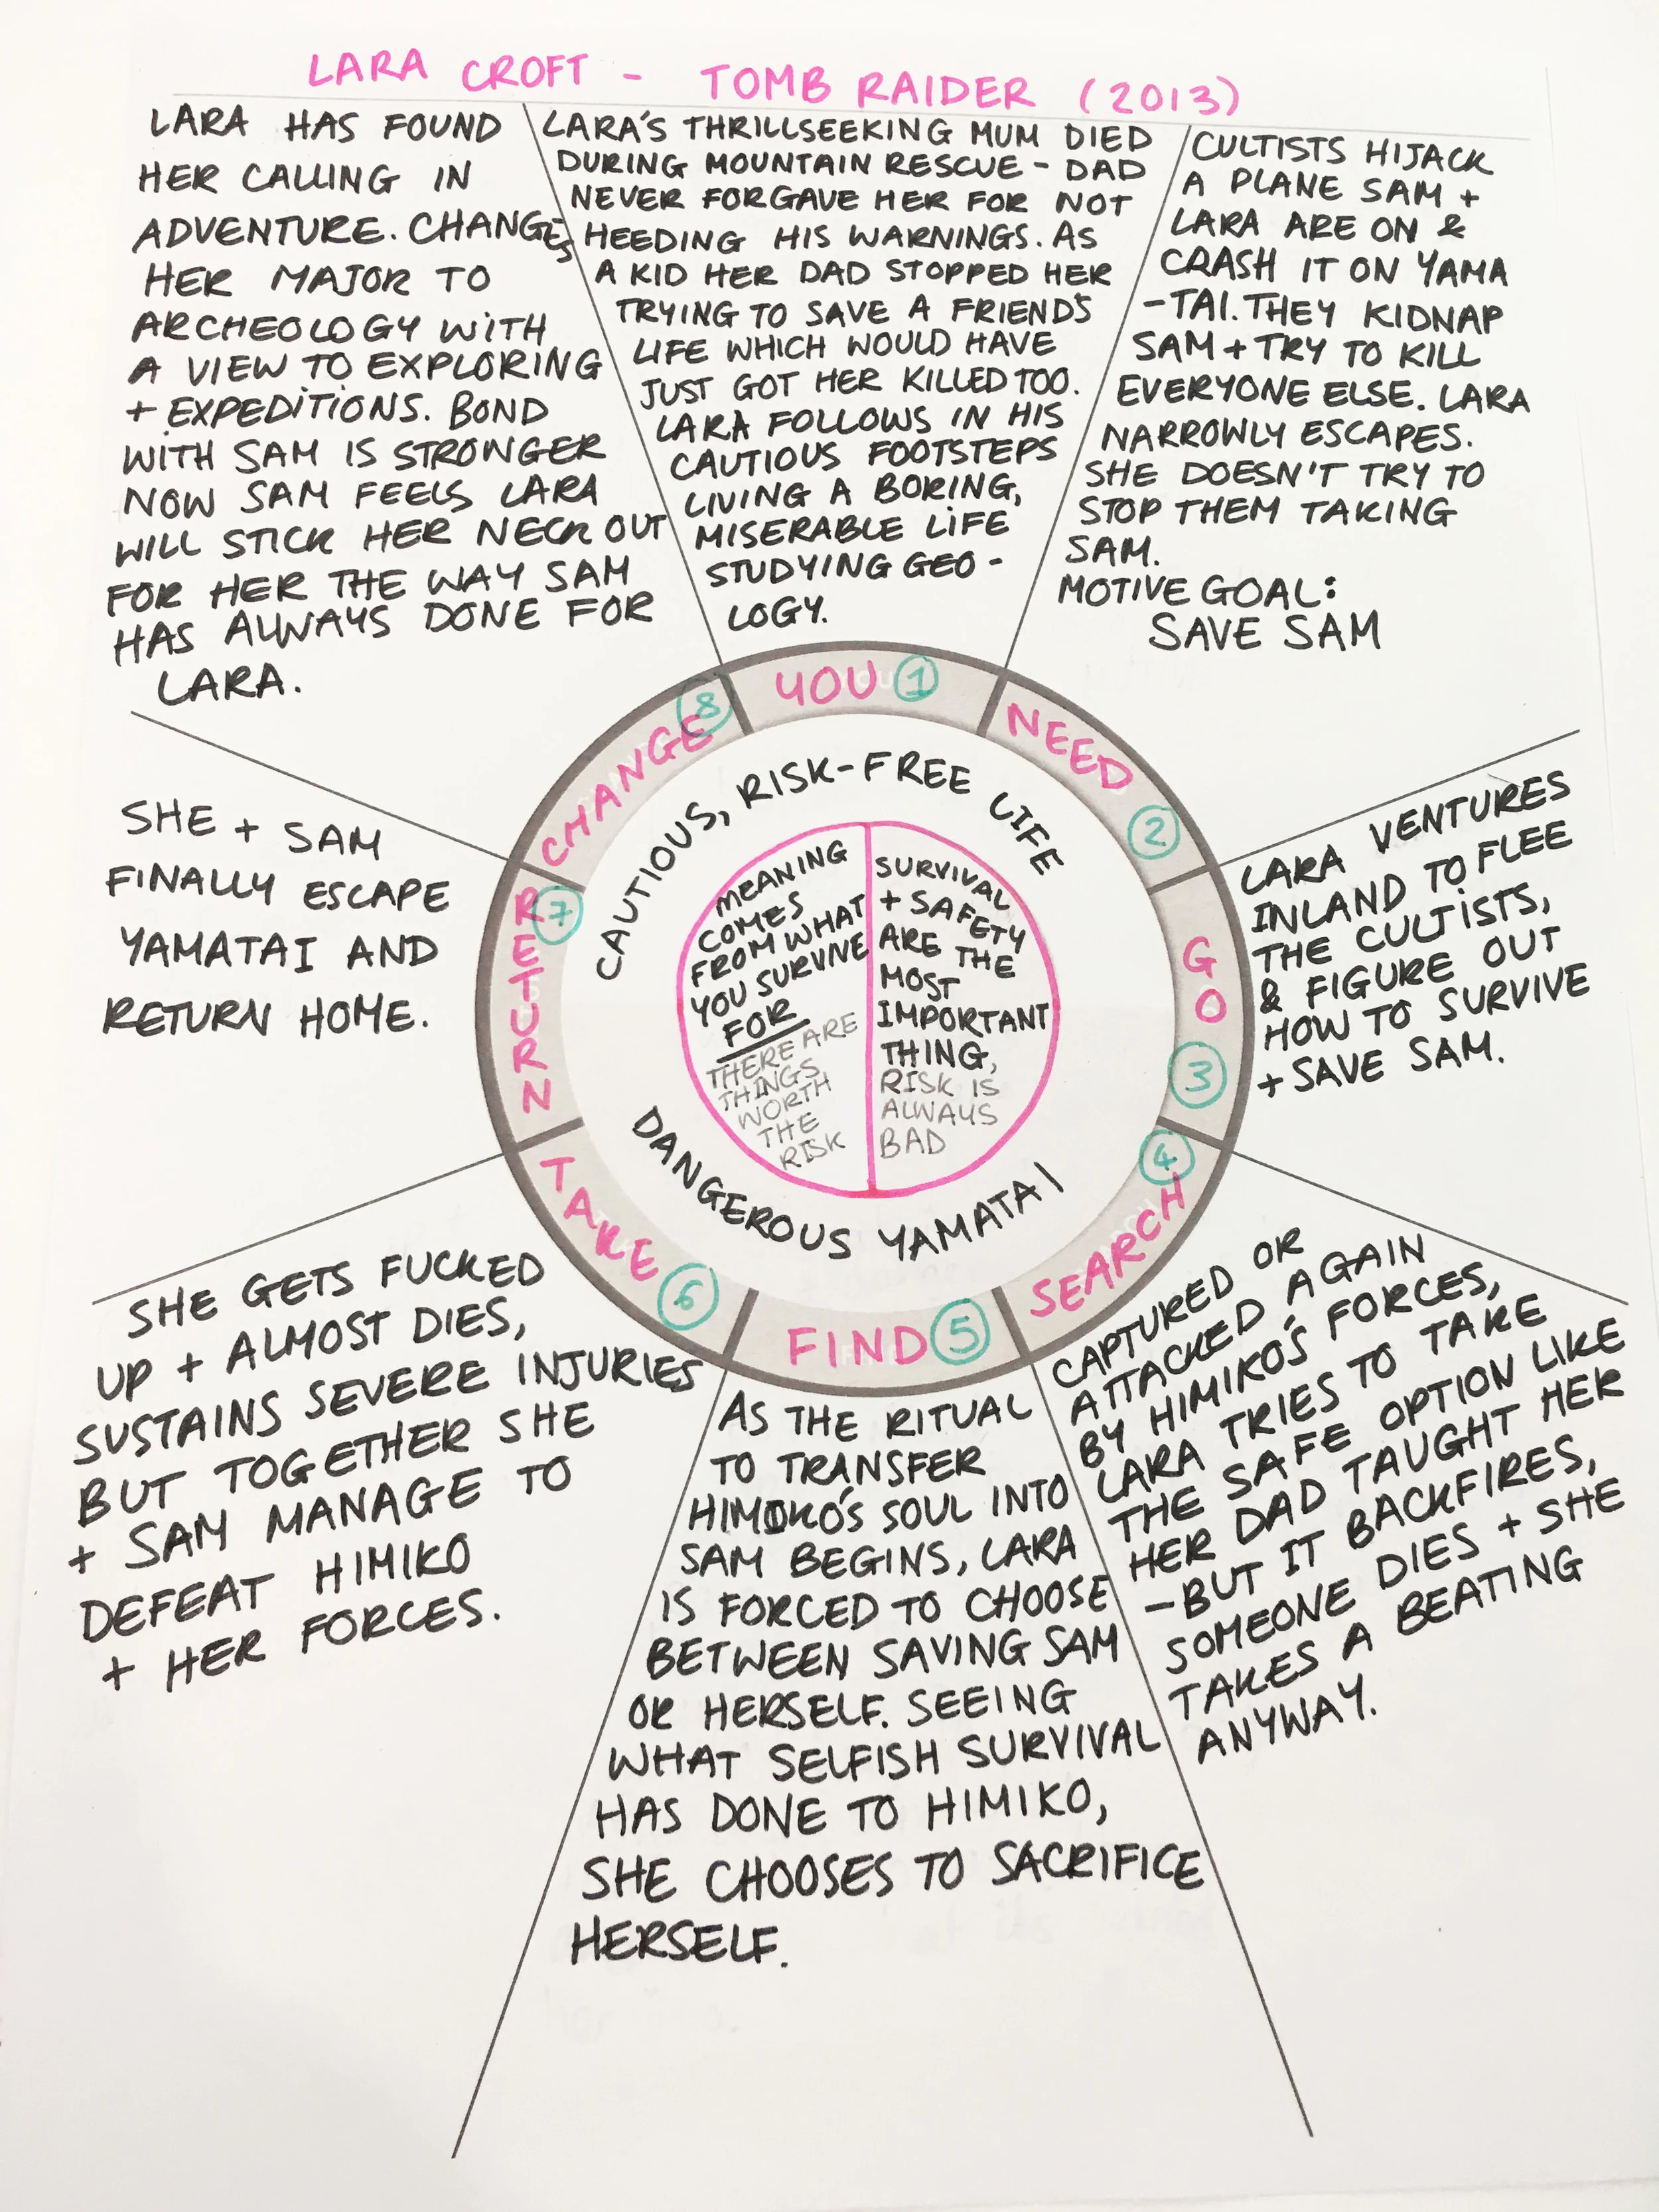 LARA CROFT - TOMB RAIDER (2013)
LARA'S THRILLSEEKING MUM DIED
DURING MOUNTAIN RESCUE - DAD
NEVER FORGAVE HER FOR NOT
HEEDING HIS WARNINGS. AS
A KID HER DAD STOPPED HER
TRYING TO SAVE A FRIEND'S
LIFE WHICH WOULD HAVE
JUST GOT HER KILLED TOO.
LARA FOLLOWS IN HIS
CAUTIOUS FOOTSTEPS
LIVING A BORING,
MISERABLE LIFE
STUDYING GEO-
LOGY.
YOU 1
CULTISTS HIJACK
A PLANE SAM +
LARA ARE ON &
CRASH IT ON YAMA
-TAI. THEY KIDNAP
SAM + TRY TO KILL
EVERYONE ELSE. LARA
NARROWLY ESCAPES.
SHE DOESN'T TRY TO
STOP THEM TAKING
SAM.
MOTIVE GOAL:
SAVE SAM
NEED 2
LARA VENTURES
INLAND TO FLEE
THE CULTISTS,
& FIGURE OUT
HOW TO SURVIVE
+ SAVE SAM.
GO 3
CAPTURED OR
ATTACKED AGAIN
BY HIMIKO'S FORCES,
LARA TRIES TO TAKE
THE SAFE OPTION LIKE
HER DAD TAUGHT HER
-BUT IT BACKFIRES,
SOMEONE DIES + SHE
TAKES A BEATING
ANYWAY.
SEARCH 4
AS THE RITUAL
TO TRANSFER
HIMIKO'S SOUL INTO
SAM BEGINS, LARA
IS FORCED TO CHOOSE
BETWEEN SAVING SAM
OR HERSELF. SEEING
WHAT SELFISH SURVIVAL
HAS DONE TO HIMIKO,
SHE CHOOSES TO SACRIFICE
HERSELF.
FIND 5
SHE GETS FUCKED
UP + ALMOST DIES,
SUSTAINS SEVERE INJURIES
BUT TOGETHER SHE
+ SAM MANAGE TO
DEFEAT HIMIKO
+ HER FORCES.
TAKE 6
SHE + SAM
FINALLY ESCAPE
YAMATAI AND
RETURN HOME.
RETURN 7
LARA HAS FOUND
HER CALLING IN
ADVENTURE. CHANGES
HER MAJOR TO
ARCHEOLOGY WITH
A VIEW TO EXPLORING
+ EXPEDITIONS. BOND
WITH SAM IS STRONGER
NOW SAM FEELS LARA
WILL STICK HER NECK OUT
FOR HER THE WAY SAM
HAS ALWAYS DONE FOR
LARA.
CHANGE 8
CAUTIOUS, RISK-FREE LIFE
MEANING
COMES
FROM WHAT
YOU SURVIVE
FOR
THERE ARE
THINGS
WORTH
THE
RISK
SURVIVAL
+ SAFETY
ARE THE
MOST
IMPORTANT
THING,
RISK IS
ALWAYS
BAD
DANGEROUS YAMATAI